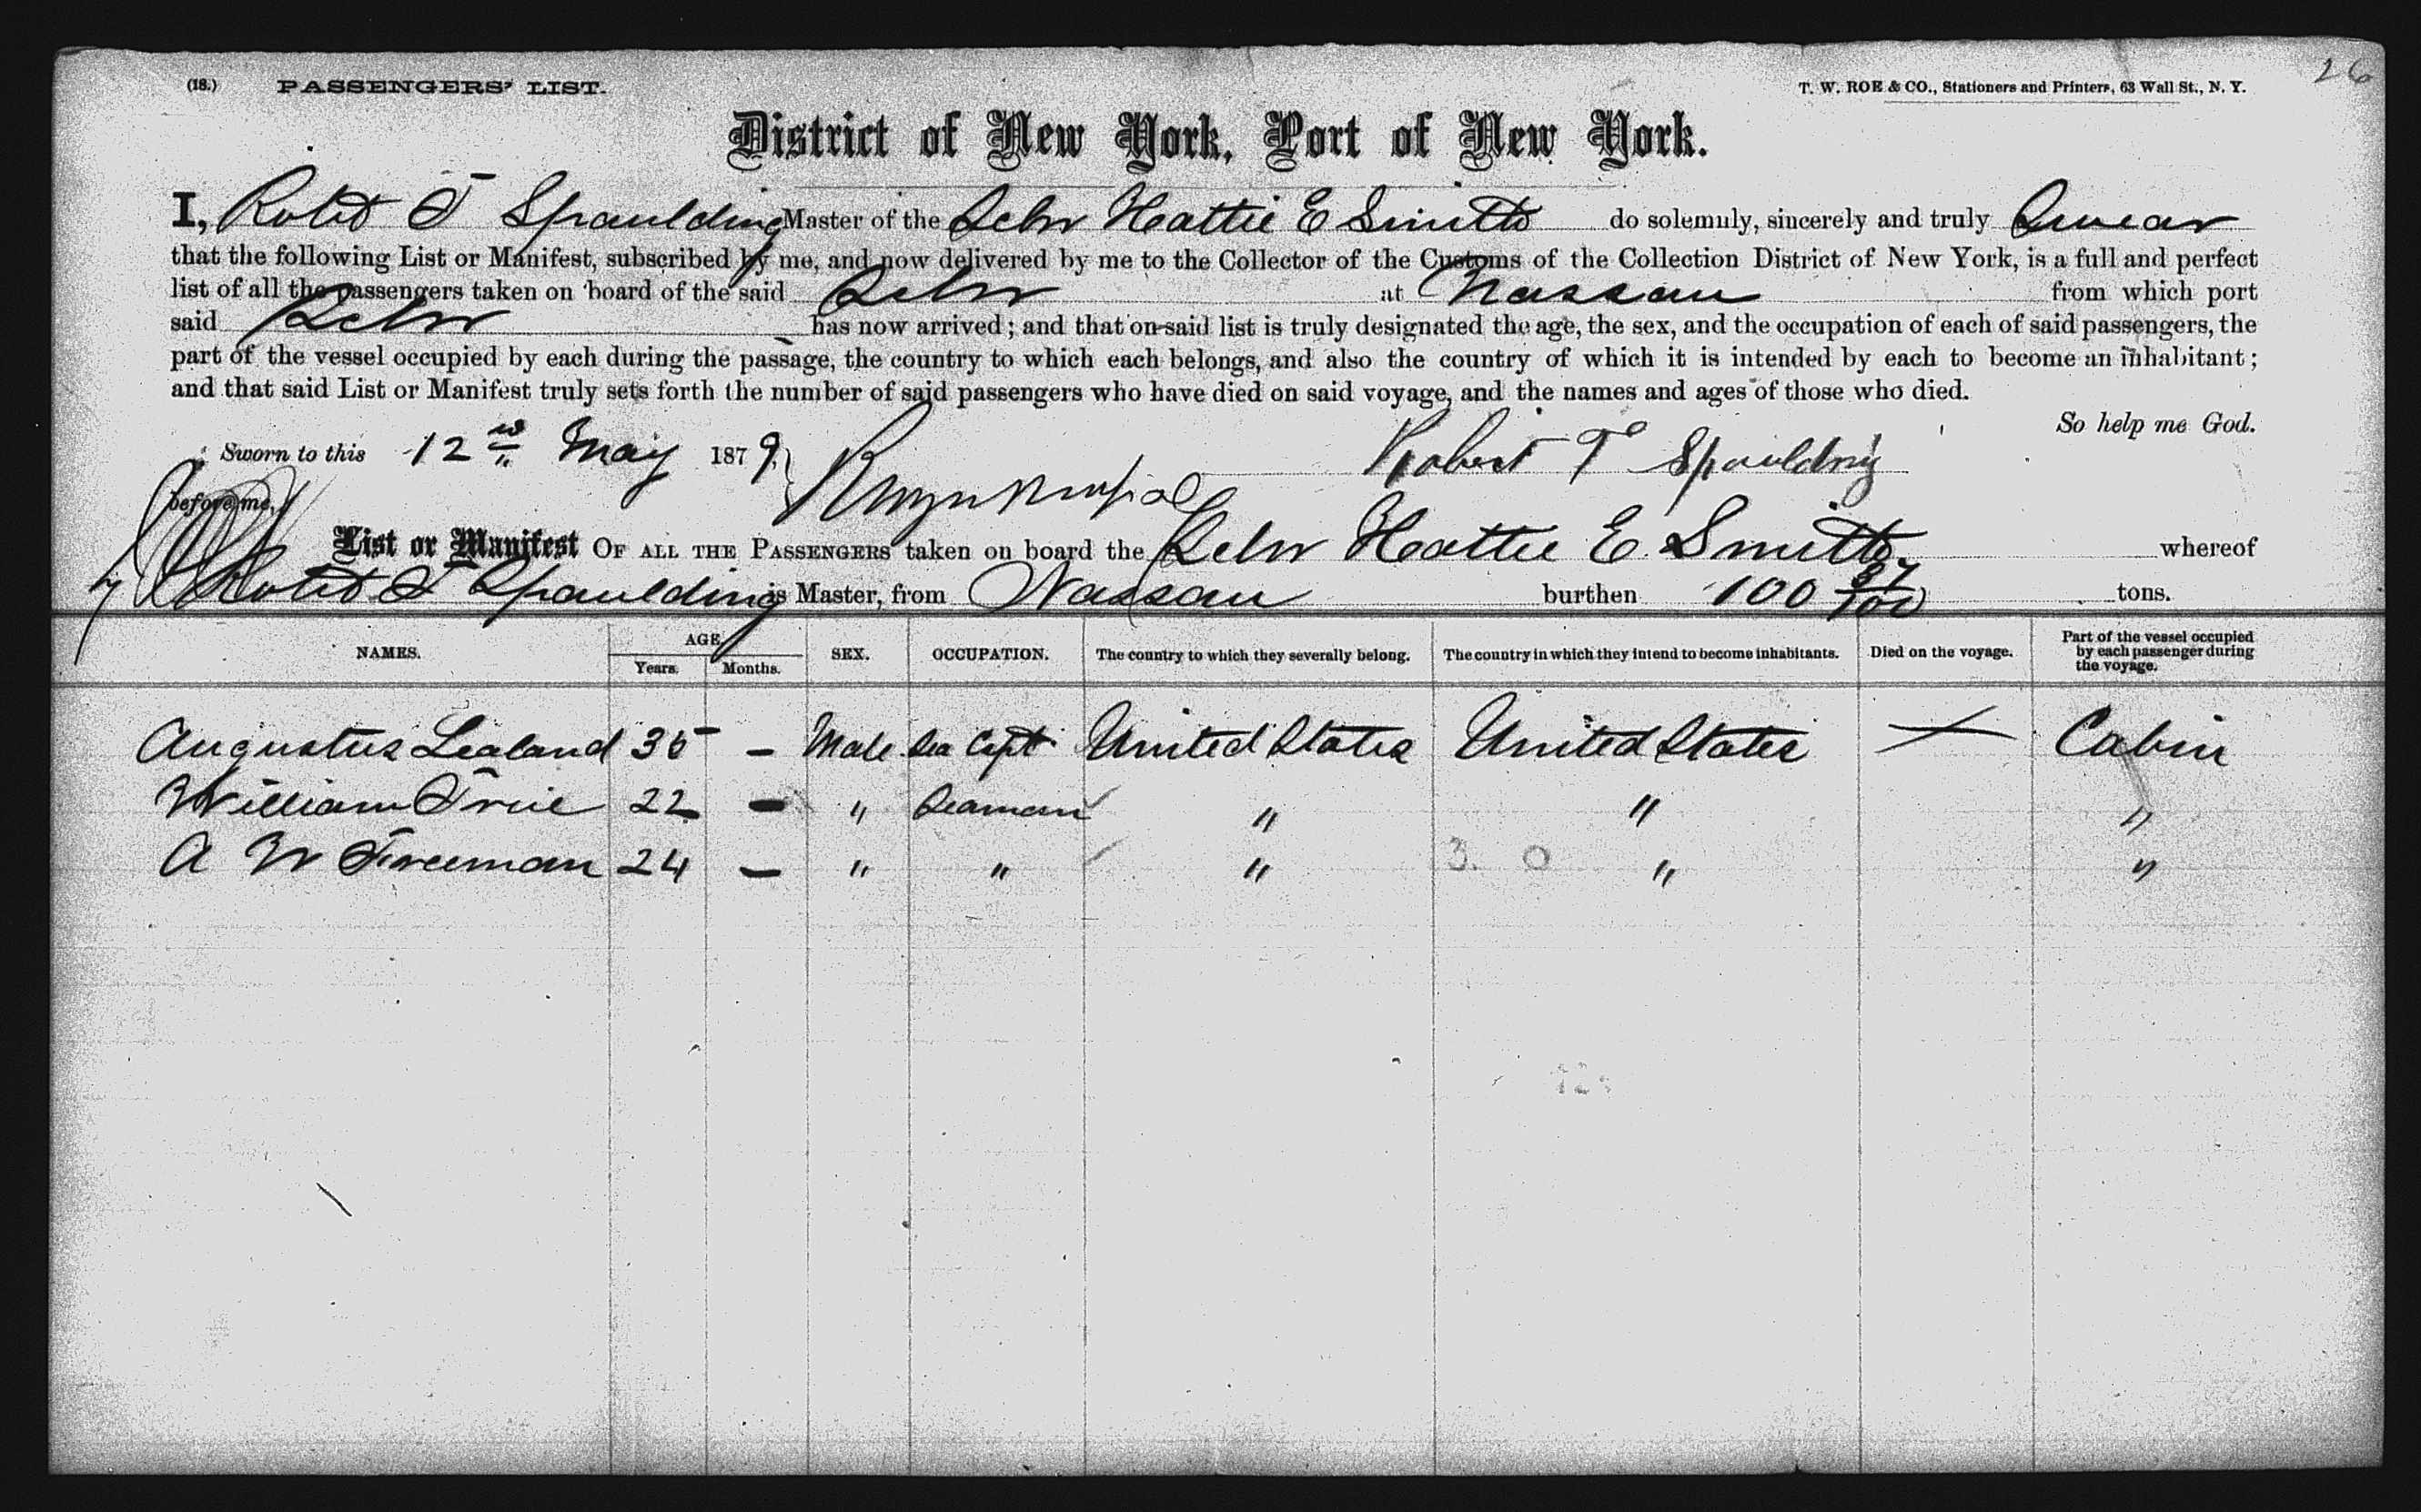 26
(18.) PASSENGERS' LIST. T. W. ROE & CO., Stationers and Printers, 63 Wall St., N. Y.
District of New York, Port of New York.
I, Robt T Spaulding Master of the Schr Hattie E Smith do solemnly, sincerely and truly Swear
that the following List or Manifest, subscribed by me, and now delivered by me to the Collector of the Customs of the Collection District of New York, is a full and perfect
list of all the passengers taken on board of the said Schr at Nassau from which port
said Schr has now arrived; and that on said list is truly designated the age, the sex, and the occupation of each of said passengers, the
part of the vessel occupied by each during the passage, the country to which each belongs, and also the country of which it is intended by each to become an inhabitant;
and that said List or Manifest truly sets forth the number of said passengers who have died on said voyage, and the names and ages of those who died.
So help me God.
Sworn to this 12 May 1879 Robert T Spaulding
before me,
List or Manifest OF ALL THE PASSENGERS taken on board the Schr Hattie E. Smith whereof
Robt T Spaulding is Master, from Nassau burthen 100 37/100 tons.
NAMES. AGE. Years. Months. SEX. OCCUPATION. The country to which they severally belong. The country in which they intend to become inhabitants. Died on the voyage. Part of the vessel occupied by each passenger during the voyage.
Augustus Lealand 35 – Male Sea Capt United States United States Cabin
William True 22 – " Seaman " " "
A W Freeman 24 – " " " 3. 0 " "